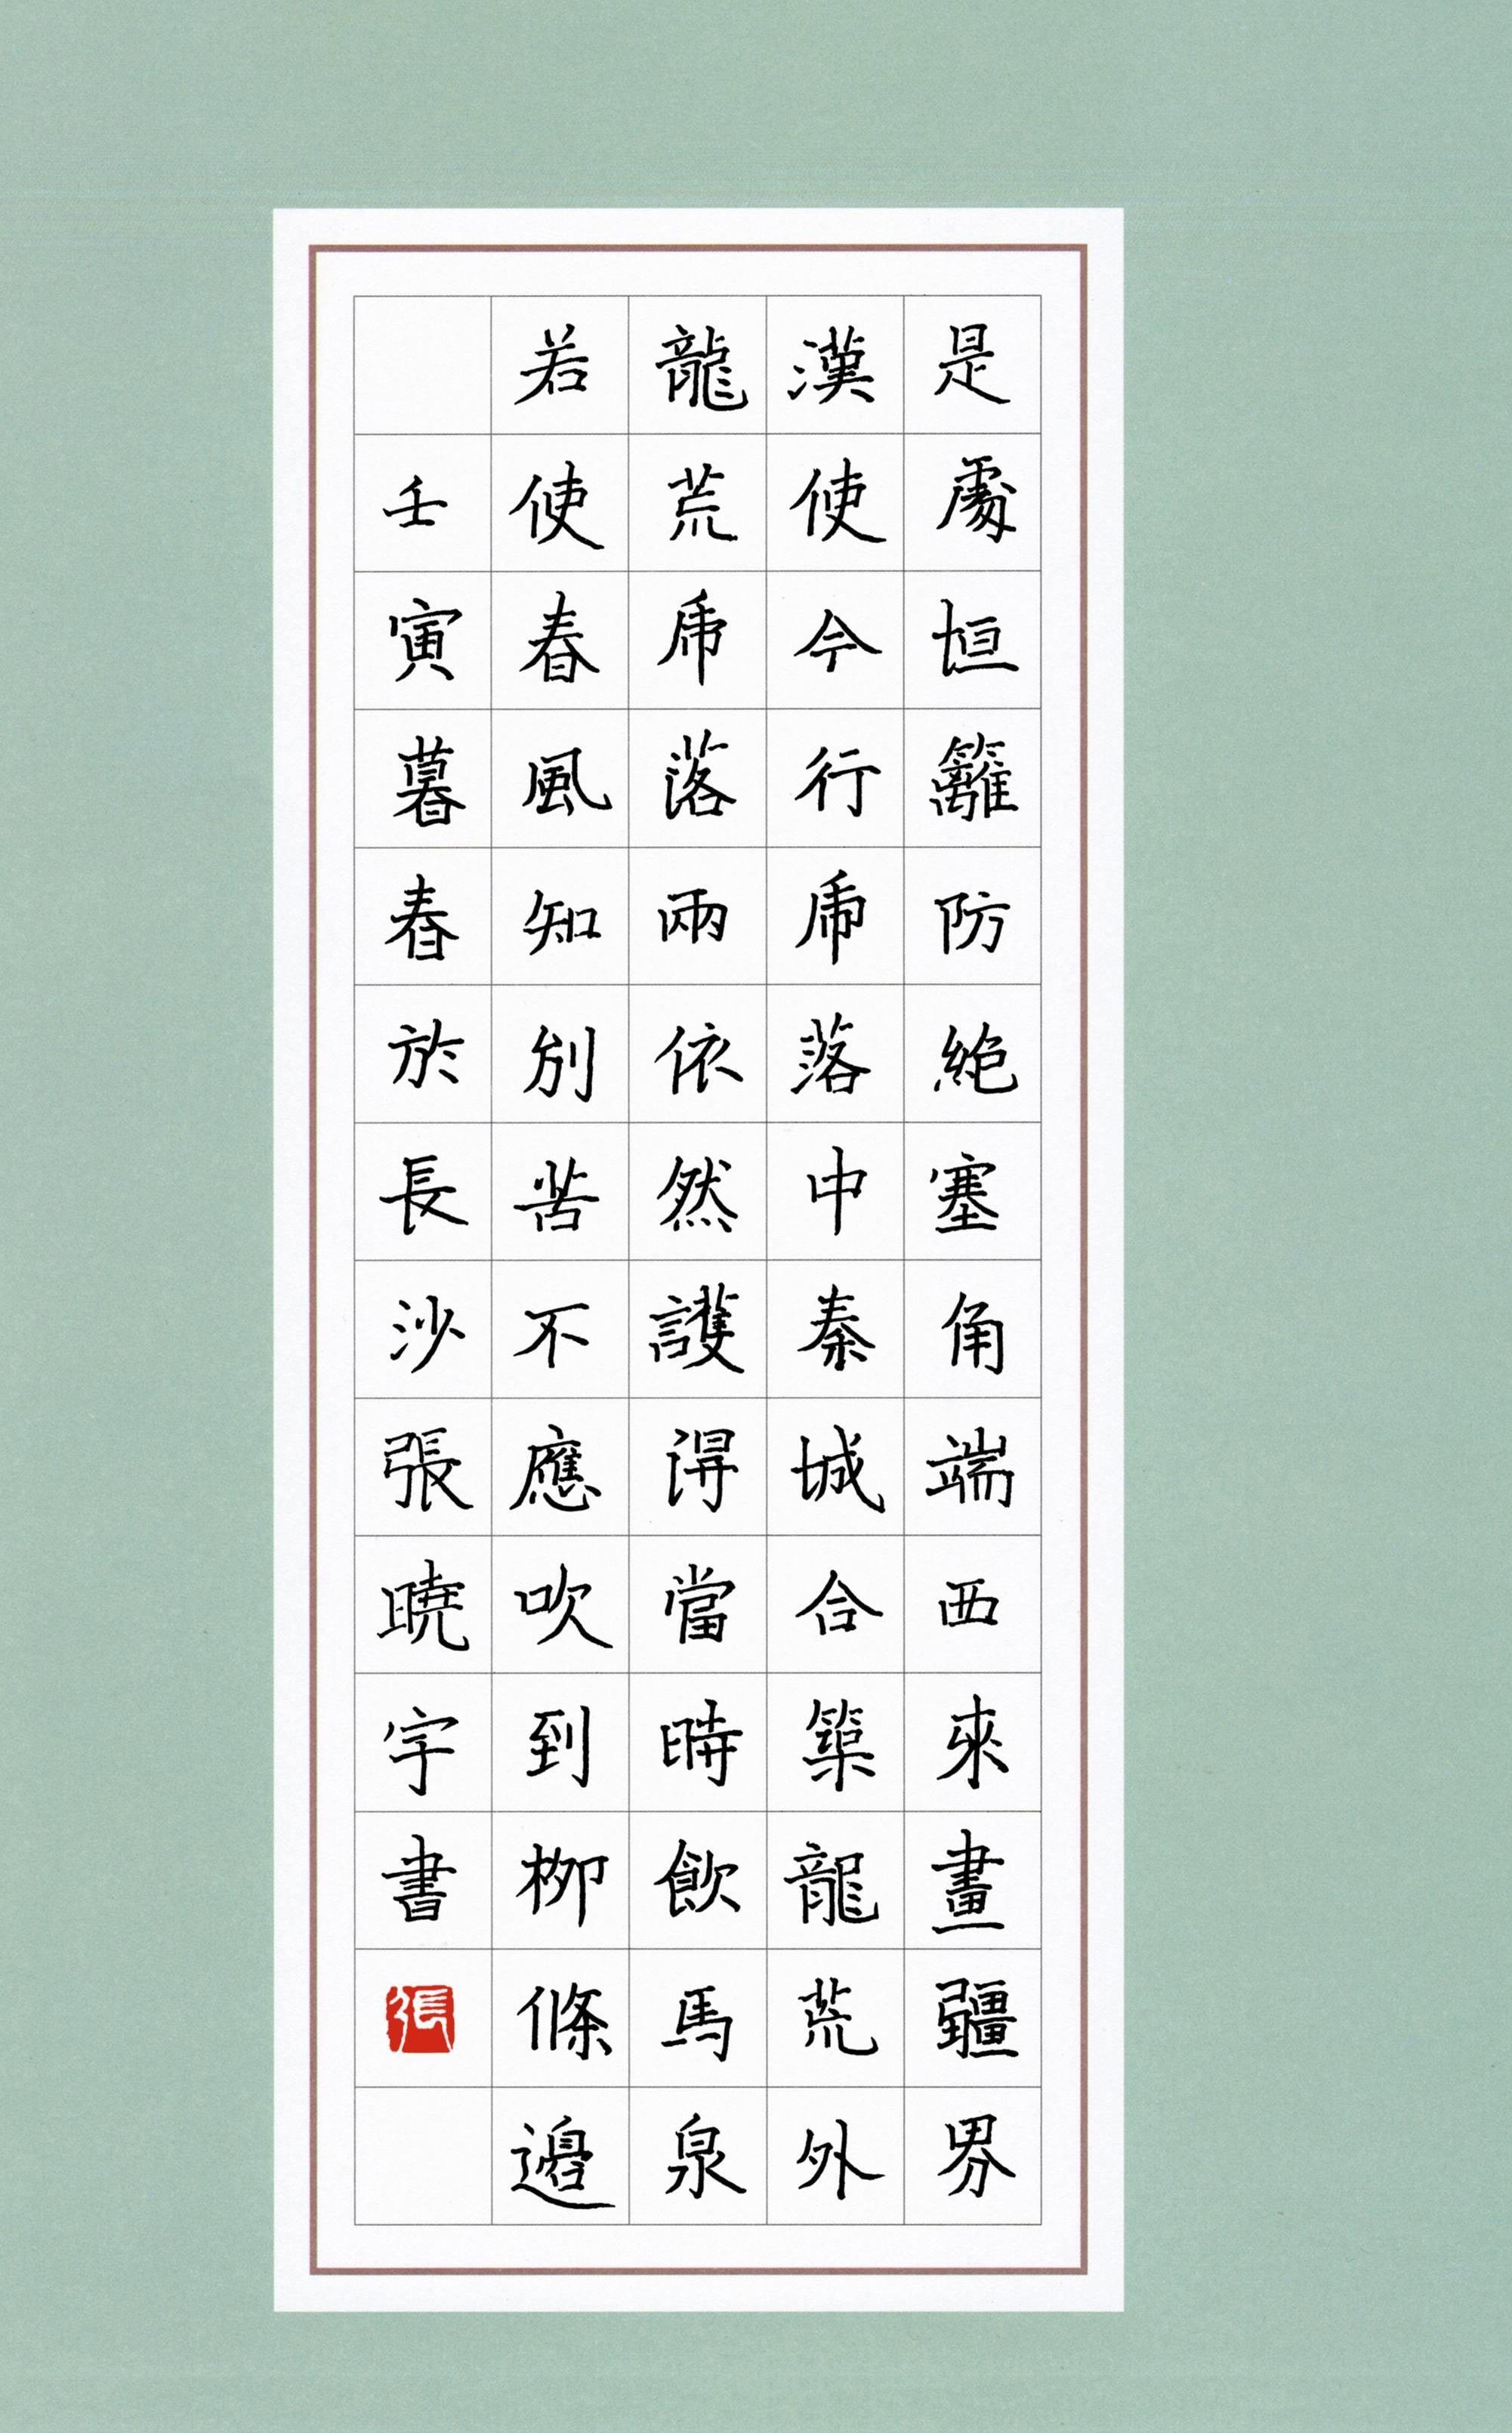 是處垣籬防絶塞角端西來畫疆界
漢使今行虎落中秦城合築龍荒外
龍荒虎落兩依然護得當時飲馬泉
若使春風知別苦不應吹到柳條邊
壬寅暮春於長沙張曉宇書
張